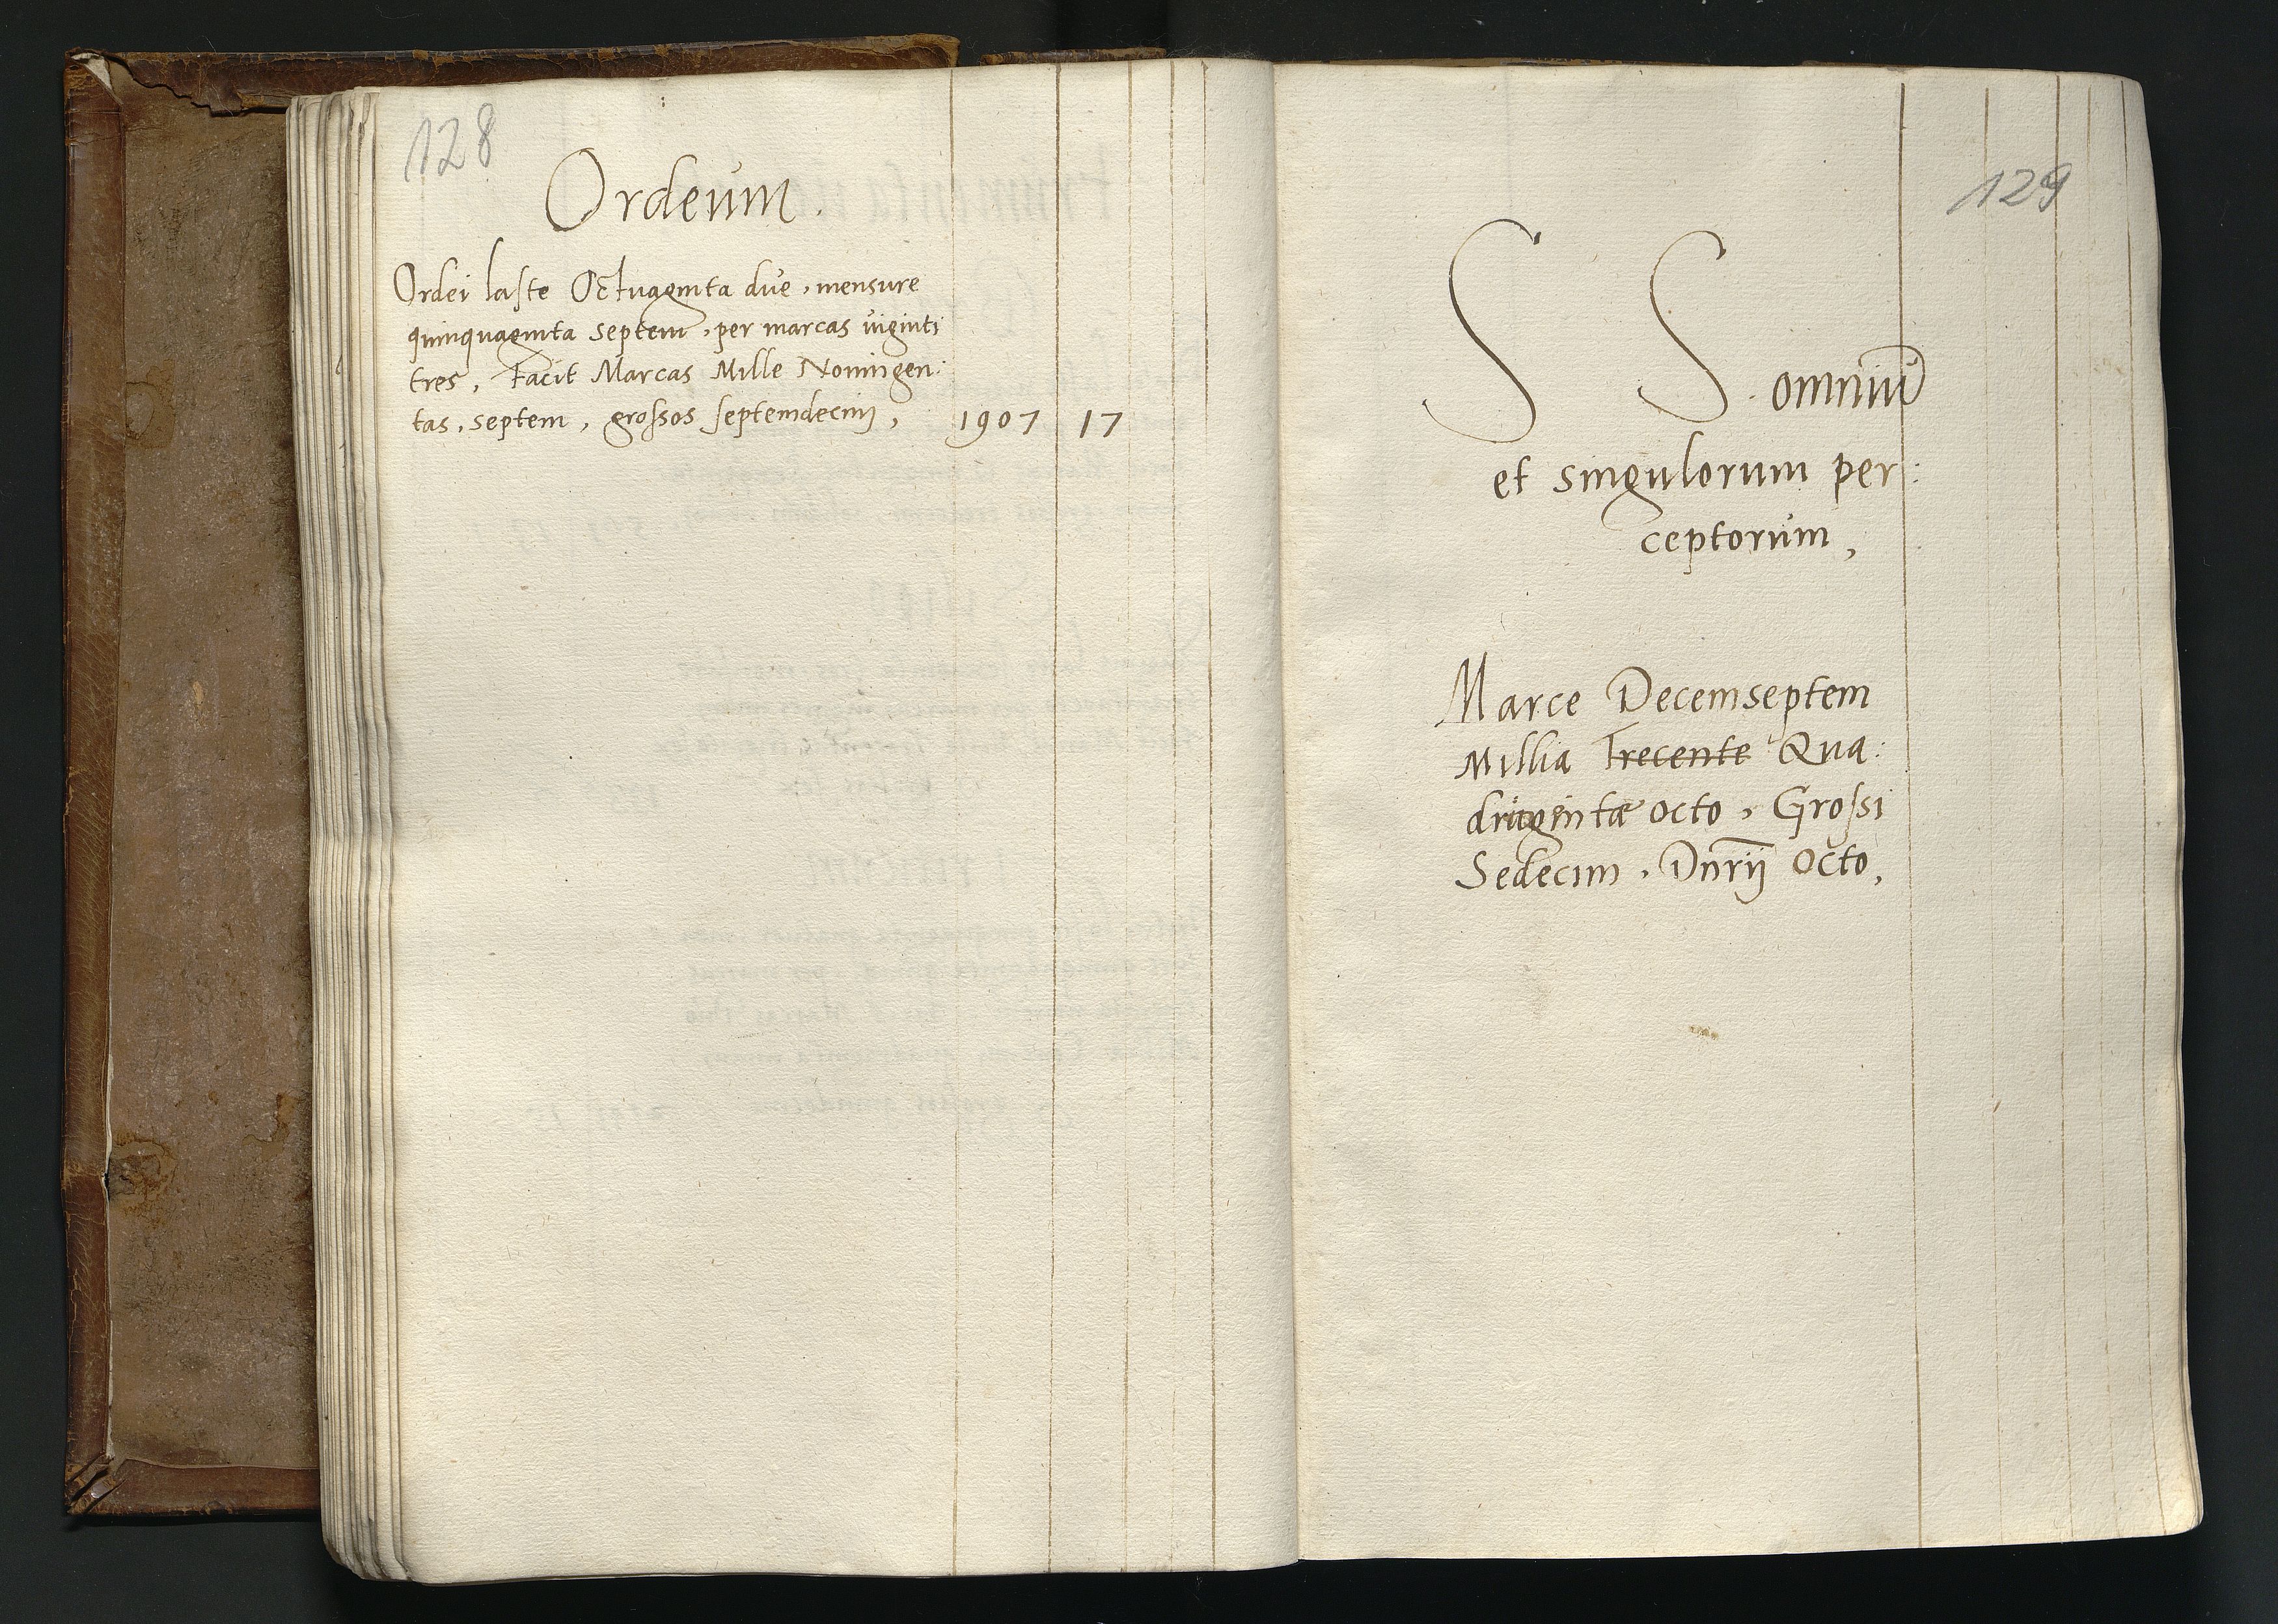 128
Ordeum.
Ordei laste Octuaginta due, mensure
quinquaginta septem, per marcas viginti
tres, Facit Marcas Mille Noningen:
tas, septem, grossos septemdecim, 1907 17
129
S S. omniū
et singulorum per:
ceptorum,
Marce Decemseptem
Millia Trecente Qua:
dringentæ octo, Grossi
Sedecim, Dnrij octo,